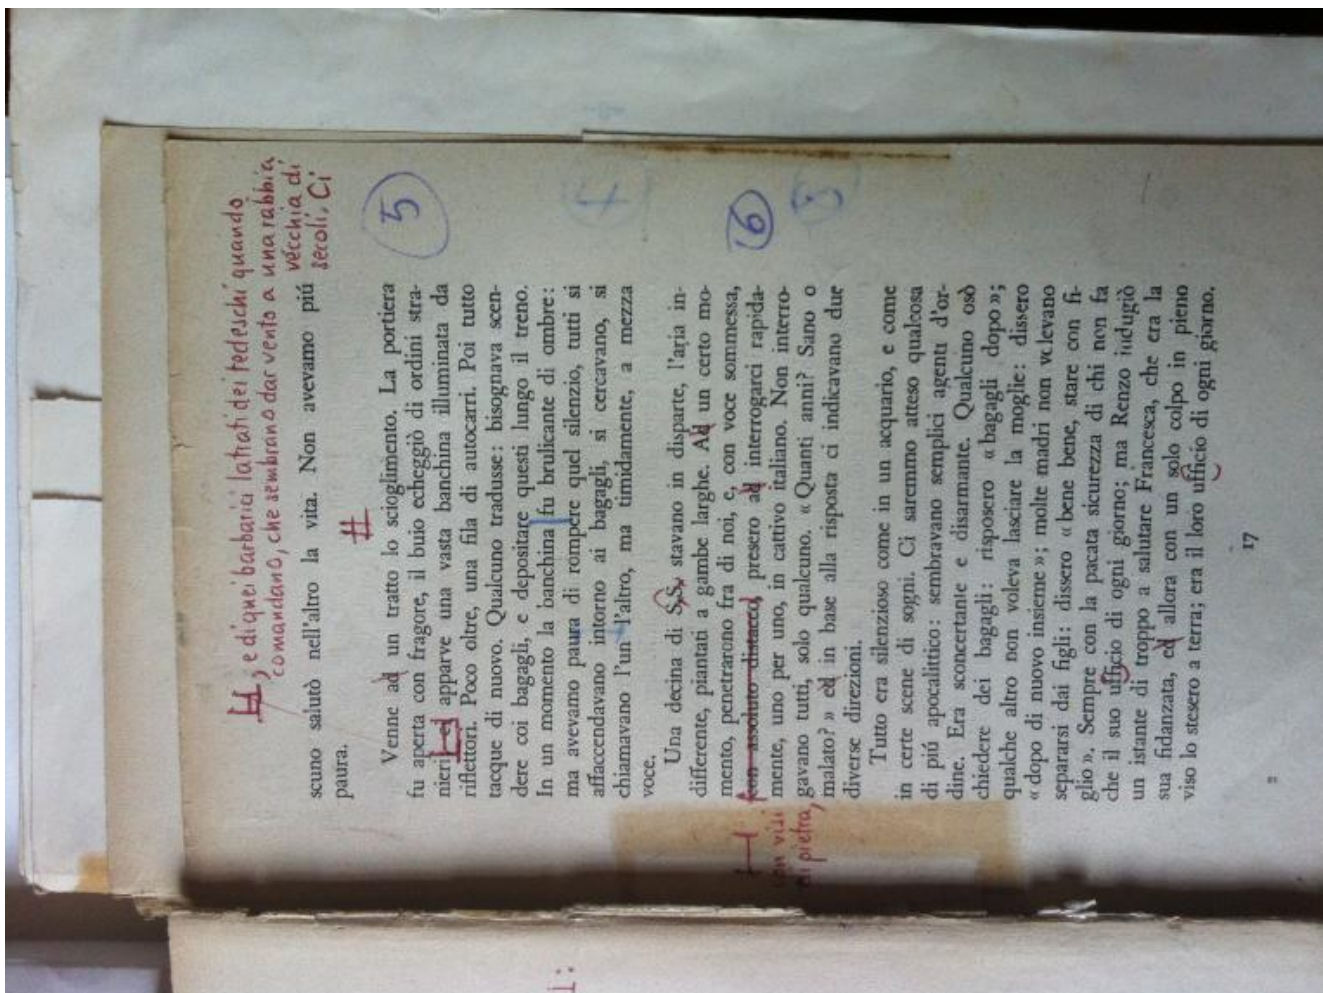 , e di quei barbarici latrati dei tedeschi quando
comandano, che sembrano dar vento a una rabbia
vecchia di
secoli. Ci
scuno salutò nell'altro la vita. Non avevamo piú
paura.
#
Venne ad un tratto lo scioglimento. La portiera
fu aperta con fragore, il buio echeggiò di ordini stra-
nieri ed apparve una vasta banchina illuminata da
riflettori. Poco oltre, una fila di autocarri. Poi tutto
tacque di nuovo. Qualcuno tradusse: bisognava scen-
dere coi bagagli, e depositare questi lungo il treno.
In un momento la banchina fu brulicante di ombre:
ma avevamo paura di rompere quel silenzio, tutti si
affaccendavano intorno ai bagagli, si cercavano, si
chiamavano l'un l'altro, ma timidamente, a mezza
voce.
5
Una decina di S.S. stavano in disparte, l'aria in-
differente, piantati a gambe larghe. Ad un certo mo-
mento, penetrarono fra di noi, e, con voce sommessa,
con assoluto distacco, presero ad interrogarci rapida-
mente, uno per uno, in cattivo italiano. Non interro-
gavano tutti, solo qualcuno. « Quanti anni? Sano o
malato? » ed in base alla risposta ci indicavano due
diverse direzioni.
con visi
di pietra,
6
Tutto era silenzioso come in un acquario, e come
in certe scene di sogni. Ci saremmo atteso qualcosa
di piú apocalittico: sembravano semplici agenti d'or-
dine. Era sconcertante e disarmante. Qualcuno osò
chiedere dei bagagli: risposero « bagagli dopo »;
qualche altro non voleva lasciare la moglie: dissero
« dopo di nuovo insieme »; molte madri non volevano
separarsi dai figli: dissero « bene bene, stare con fi-
glio ». Sempre con la pacata sicurezza di chi non fa
che il suo ufficio di ogni giorno; ma Renzo indugiò
un istante di troppo a salutare Francesca, che era la
sua fidanzata, ed allora con un solo colpo in pieno
viso lo stesero a terra; era il loro ufficio di ogni giorno.
17